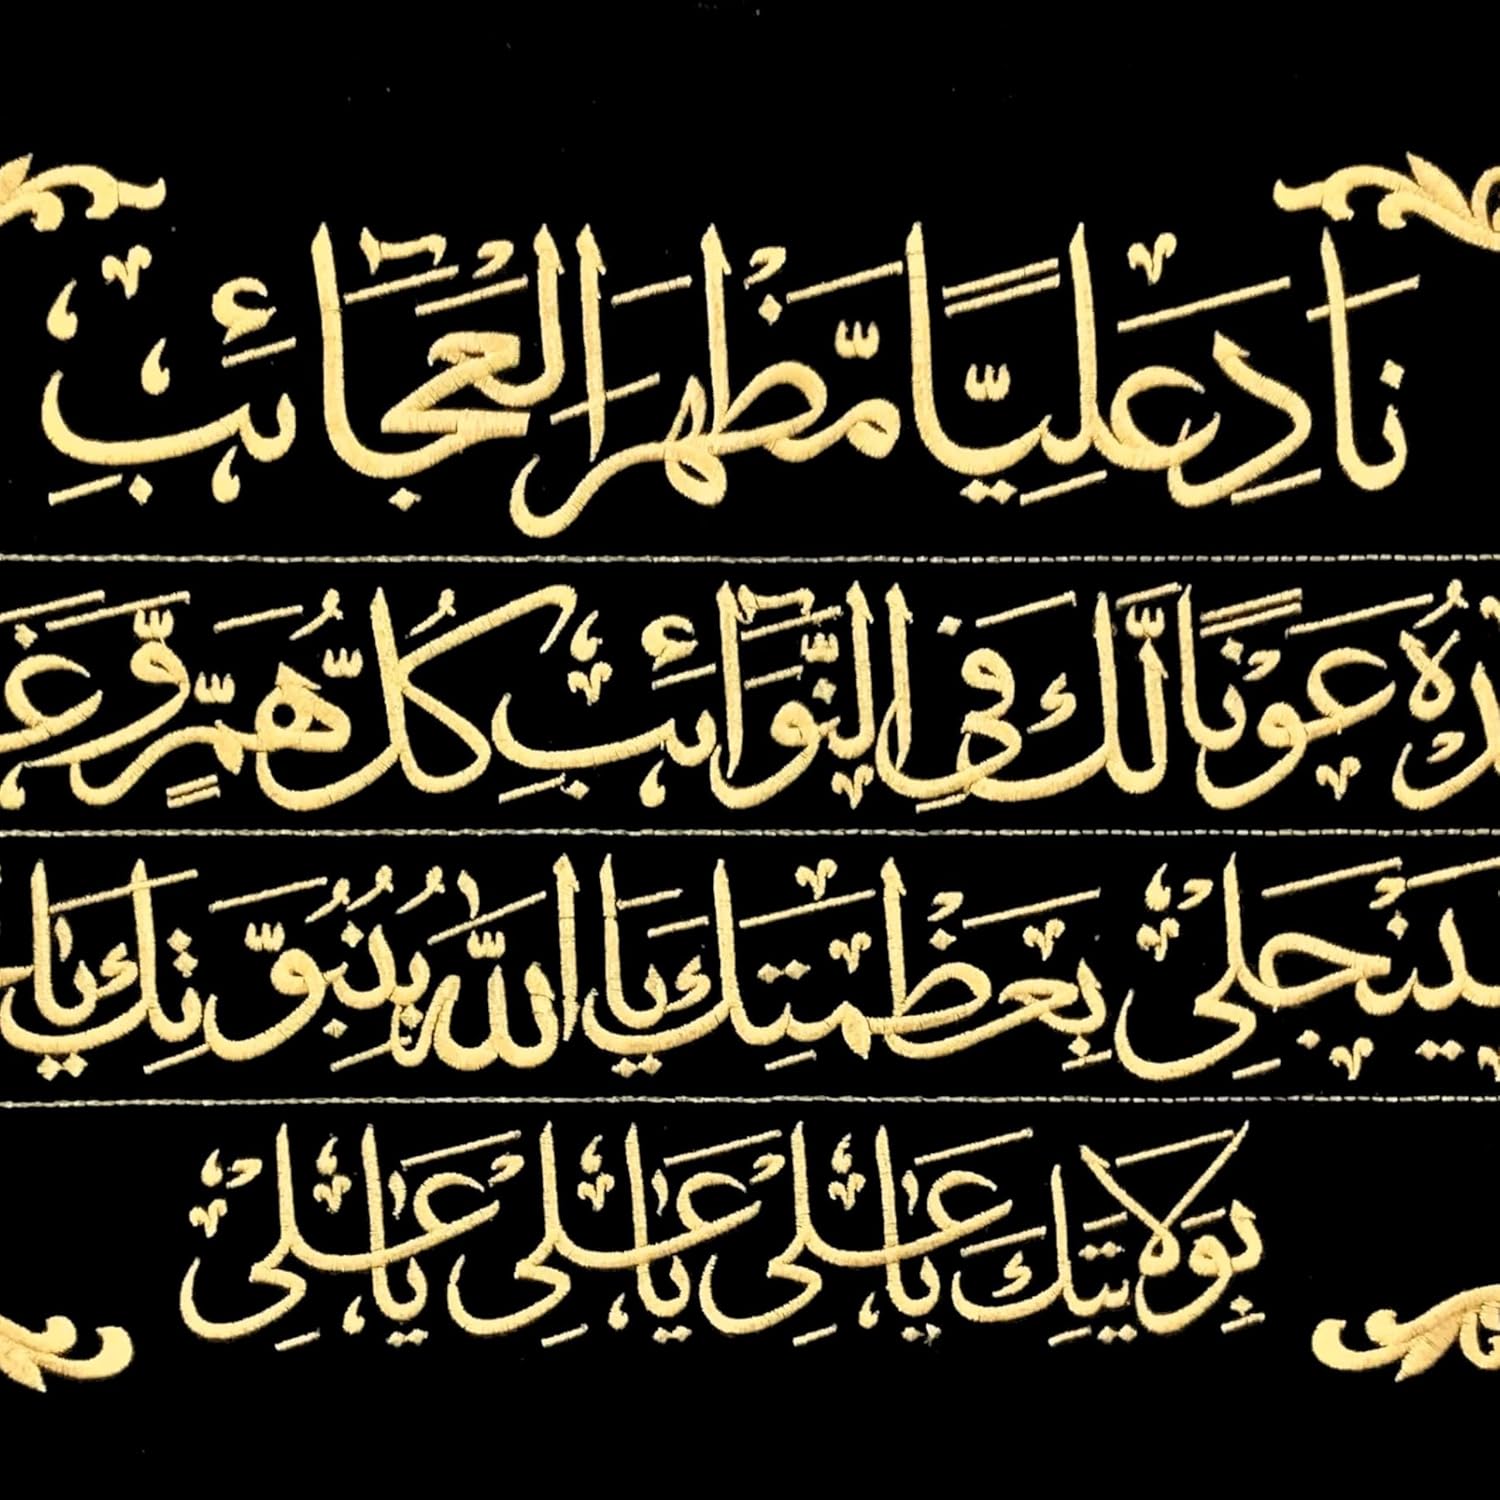 نَادِ عَلِيًّا مَّظْهَرَ الْعَجَائِبِ
عَوْنًا لَّكَ فِي النَّوَائِبِ كُلُّ هَمٍّ وَّ
جَلِيْ بِعَظْمَتِكَ يَا اللّٰهُ بِنُبُوَّتِكَ يَا
بِوَلَايَتِكَ يَا عَلِيْ يَا عَلِيْ يَا عَلِيْ